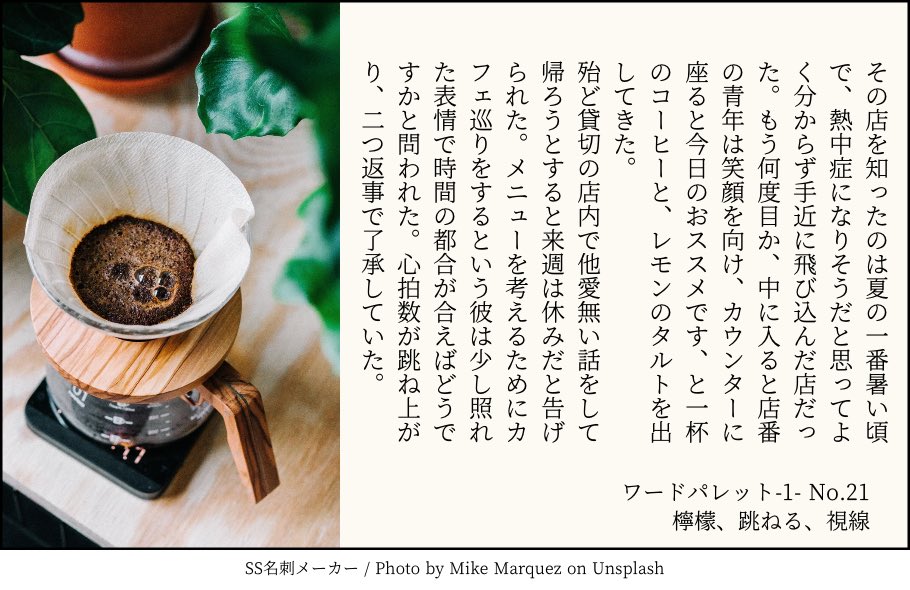 その店を知ったのは夏の一番暑い頃
で、熱中症になりそうだと思ってよ
く分からず手近に飛び込んだ店だっ
た。もう何度目か、中に入ると店番
の青年は笑顔を向け、カウンターに
座ると今日のおススメです、と一杯
のコーヒーと、レモンのタルトを出
してきた。
殆ど貸切の店内で他愛無い話をして
帰ろうとすると来週は休みだと告げ
られた。メニューを考えるためにカ
フェ巡りをするという彼は少し照れ
た表情で時間の都合が合えばどうで
すかと問われた。心拍数が跳ね上が
り、二つ返事で了承していた。
ワードパレット-1- No.21
檸檬、跳ねる、視線
SS名刺メーカー / Photo by Mike Marquez on Unsplash